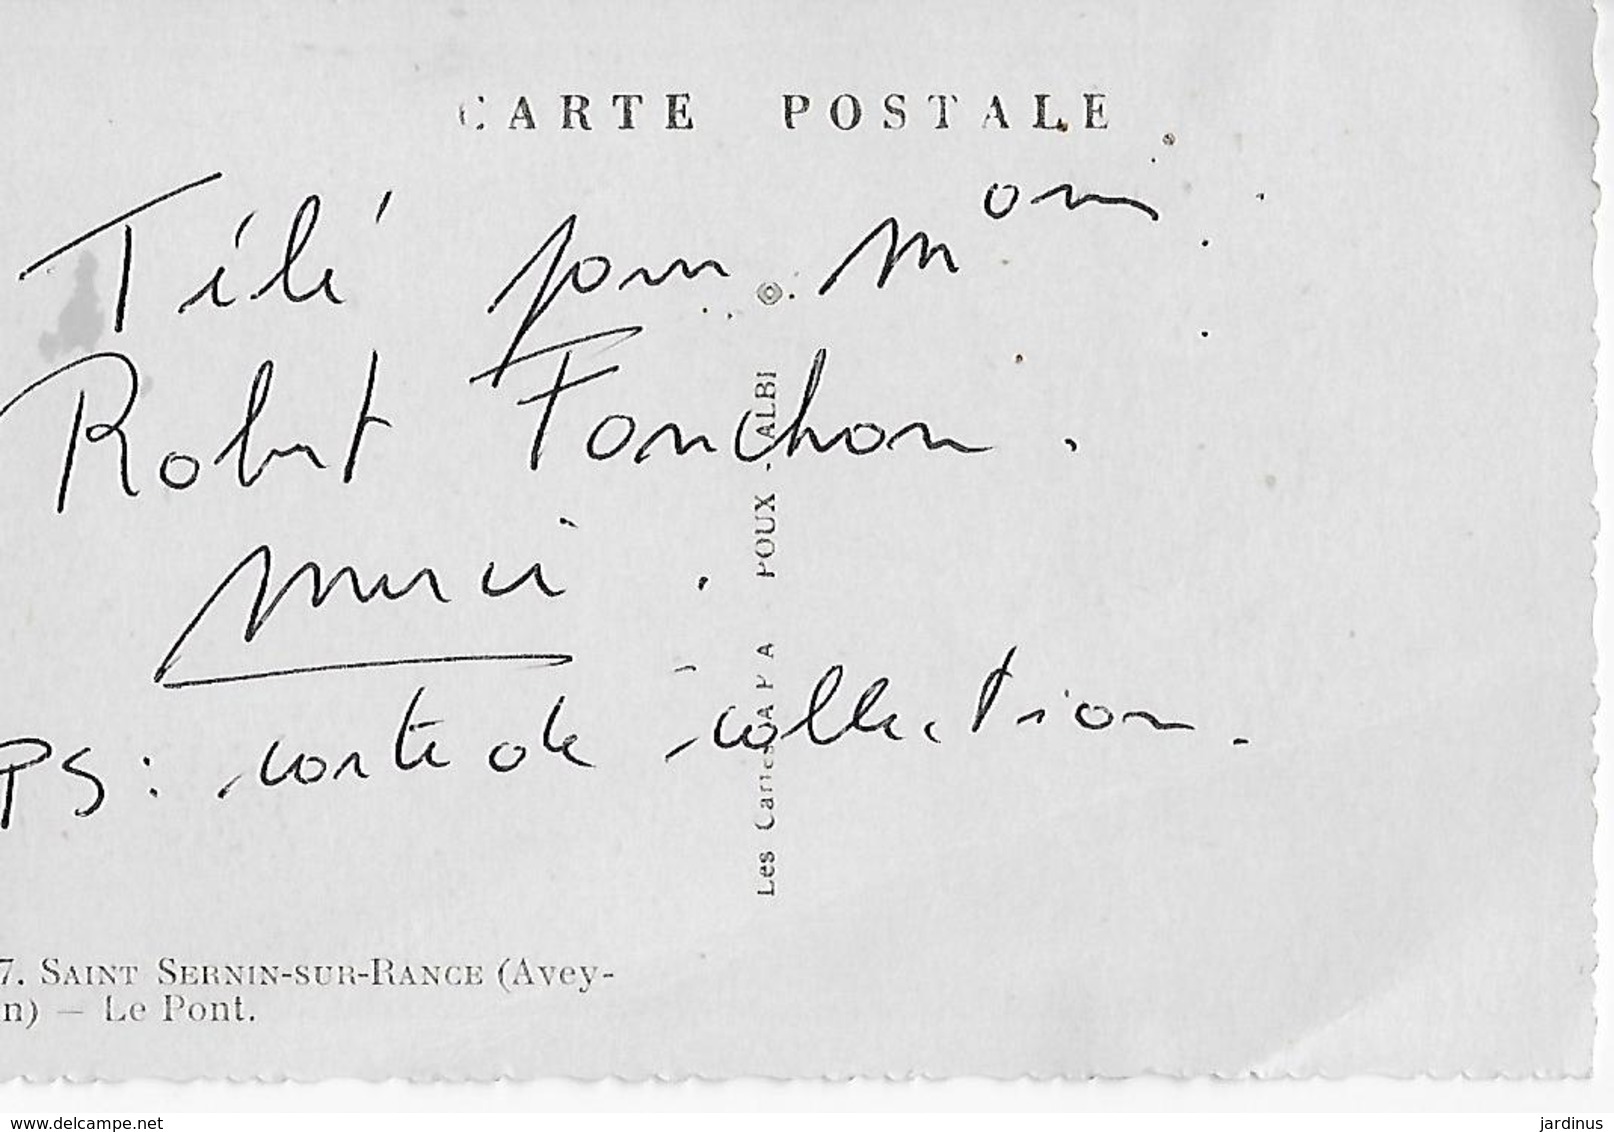 CARTE POSTALE
Télé pour Mon
Robert Fonchon.
merci.
PS: carte de collection.
Les Cartes APA POUX - ALBI
7. SAINT SERNIN-SUR-RANCE (Avey-
n) — Le Pont.
www.delcampe.net
jardinus